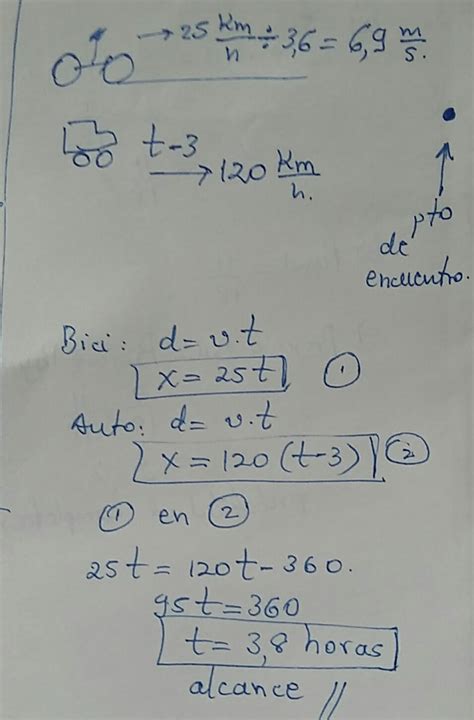 → 25 Km/h ÷ 3,6 = 6,9 m/s.
t-3
→ 120 Km/h.
pto
de
encuentro.
Bici: d= v.t
x = 25t ①
Auto: d= v.t
x = 120 (t-3) ②
① en ②
25t = 120t - 360.
95t = 360
t = 3,8 horas
alcance //